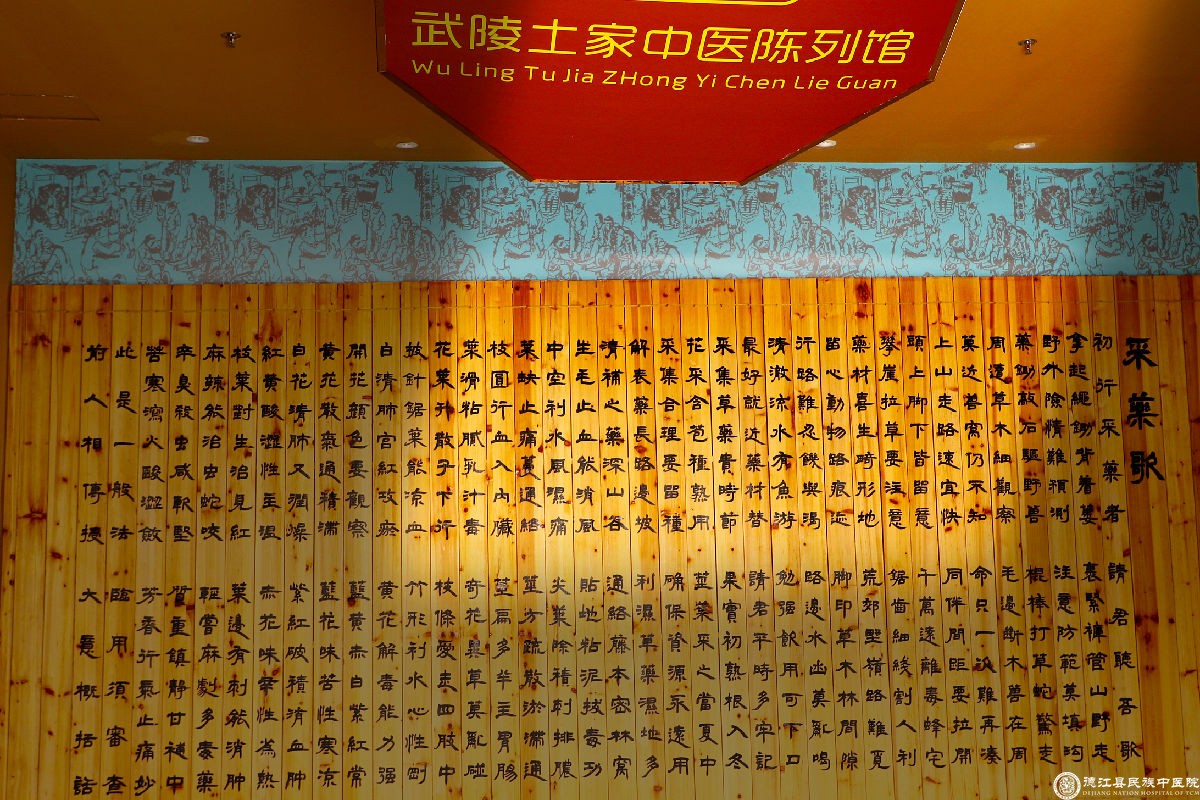 武陵土家中医陈列馆
Wu Ling Tu Jia ZHong Yi Chen Lie Guan
采藥歌
初行采藥者 請君聽吾歌
拿起繩鋤背着蔞 裏緊褲管山野走
野外險情難預測 注意防範莫填沟
藥鋤敲石驅野獸 棍棒打草蛇驚走
周邊草木細觀察 毛邊斷木兽在周
莫近兽窝仍不知 命只一次難再凑
上山走路速宜快 同伴間距要拉開
頭上脚下皆留意 千萬遠離毒蜂宅
攀崖拉草要注意 鋸齒細綫割人利
藥材喜生畸形地 荒郊堅嶺路難覓
留心動物路痕迹 脚印草木林間隙
行路難忍饑與渴 路邊水凼莫亂喝
清澈流水有魚游 勉强飲用可下口
最好就近藥材替 請君平時多牢記
采集草藥貴時節 果實初熟根入冬
花采含苞種熟用 莖葉采之當夏中
采集合理要留種 确保資源永遠用
解表藥長路邊坡 利濕草藥濕地多
清補之藥深山谷 通絡藤本密林窝
生毛止血能消風 貼地粘泥拔毒功
中空利水風濕痛 尖葉除積刺排膿
葉缺止痛蔓通絡 莖方疏散淤滯通
枝圓行血入内臟 莖扁多辛主胃腸
葉滑粘膩乳汁毒 奇花異草莫亂碰
花葉升散子下行 枝條愛走四肢中
披針鋸葉能凉血 竹形利水心性剛
白清肺宫紅攻瘀 黄花解毒能力强
開花顔色要觀察 藍黄赤白紫紅常
黄花散氣通積滯 藍花味苦性寒凉
白花清肺又潤燥 紫紅破積消血肿
紅黄酸澀性主温 赤花味辛性為熱
枝葉對生治見紅 葉邊有刺能消肿
麻辣能治虫蛇咬 輕嘗麻劇多毒藥
辛臭殺虫咸軟堅 質重鎮静甘補中
苦寒瀉火酸澀斂 芳香行氣止痛妙
此是一般法 臨用須審查
前人相傳授 大意概括話
德江县民族中医院
DEJIANG NATION HOSPITAL OF TCM